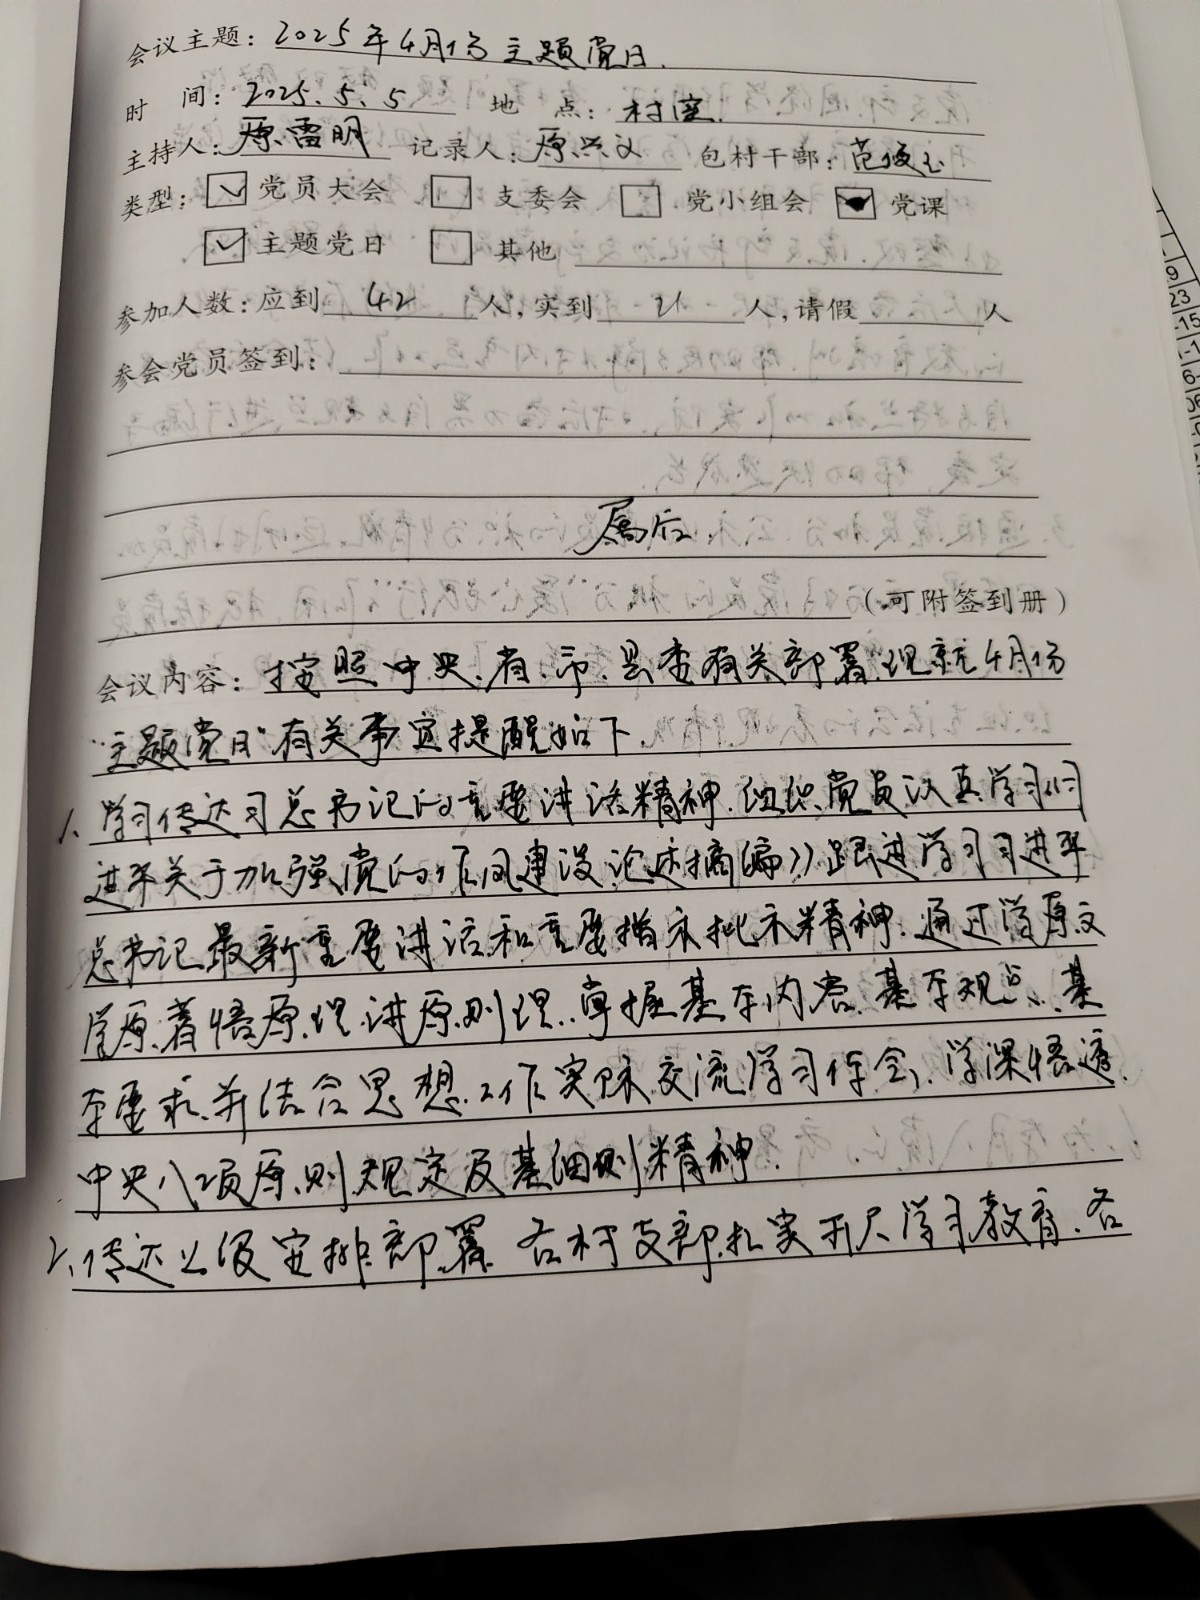 会议主题：2025年4月份主题党日.
时 间：2025.5.5 地 点：村室.
主持人：原雷明 记录人：原兴义 包村干部：范俊玉
类型：☑党员大会 □支委会 □党小组会 ☑党课
☑主题党日 □其他
参加人数：应到 42 人，实到 21 人，请假 人
参会党员签到：
属后
（可附签到册）
会议内容：按照中央.省.市.县委有关部署.现就4月份
"主题党日"有关事宜提醒如下.
1、学习传达习总书记的重要讲话精神.组织党员认真学习《习
进平关于加强党的作风建设论述摘编》跟进学习习进平
总书记最新重要讲话和重要指示批示精神.通过学原文
学原著悟原理.讲原则理.掌握基本内容.基本观点、基
本要求.并结合思想.工作实际交流学习体会、学深悟透.
中央八项原则规定及其细则精神.
2、传达上级安排部署.各村支部扎实开展学习教育.各
9
23
-15